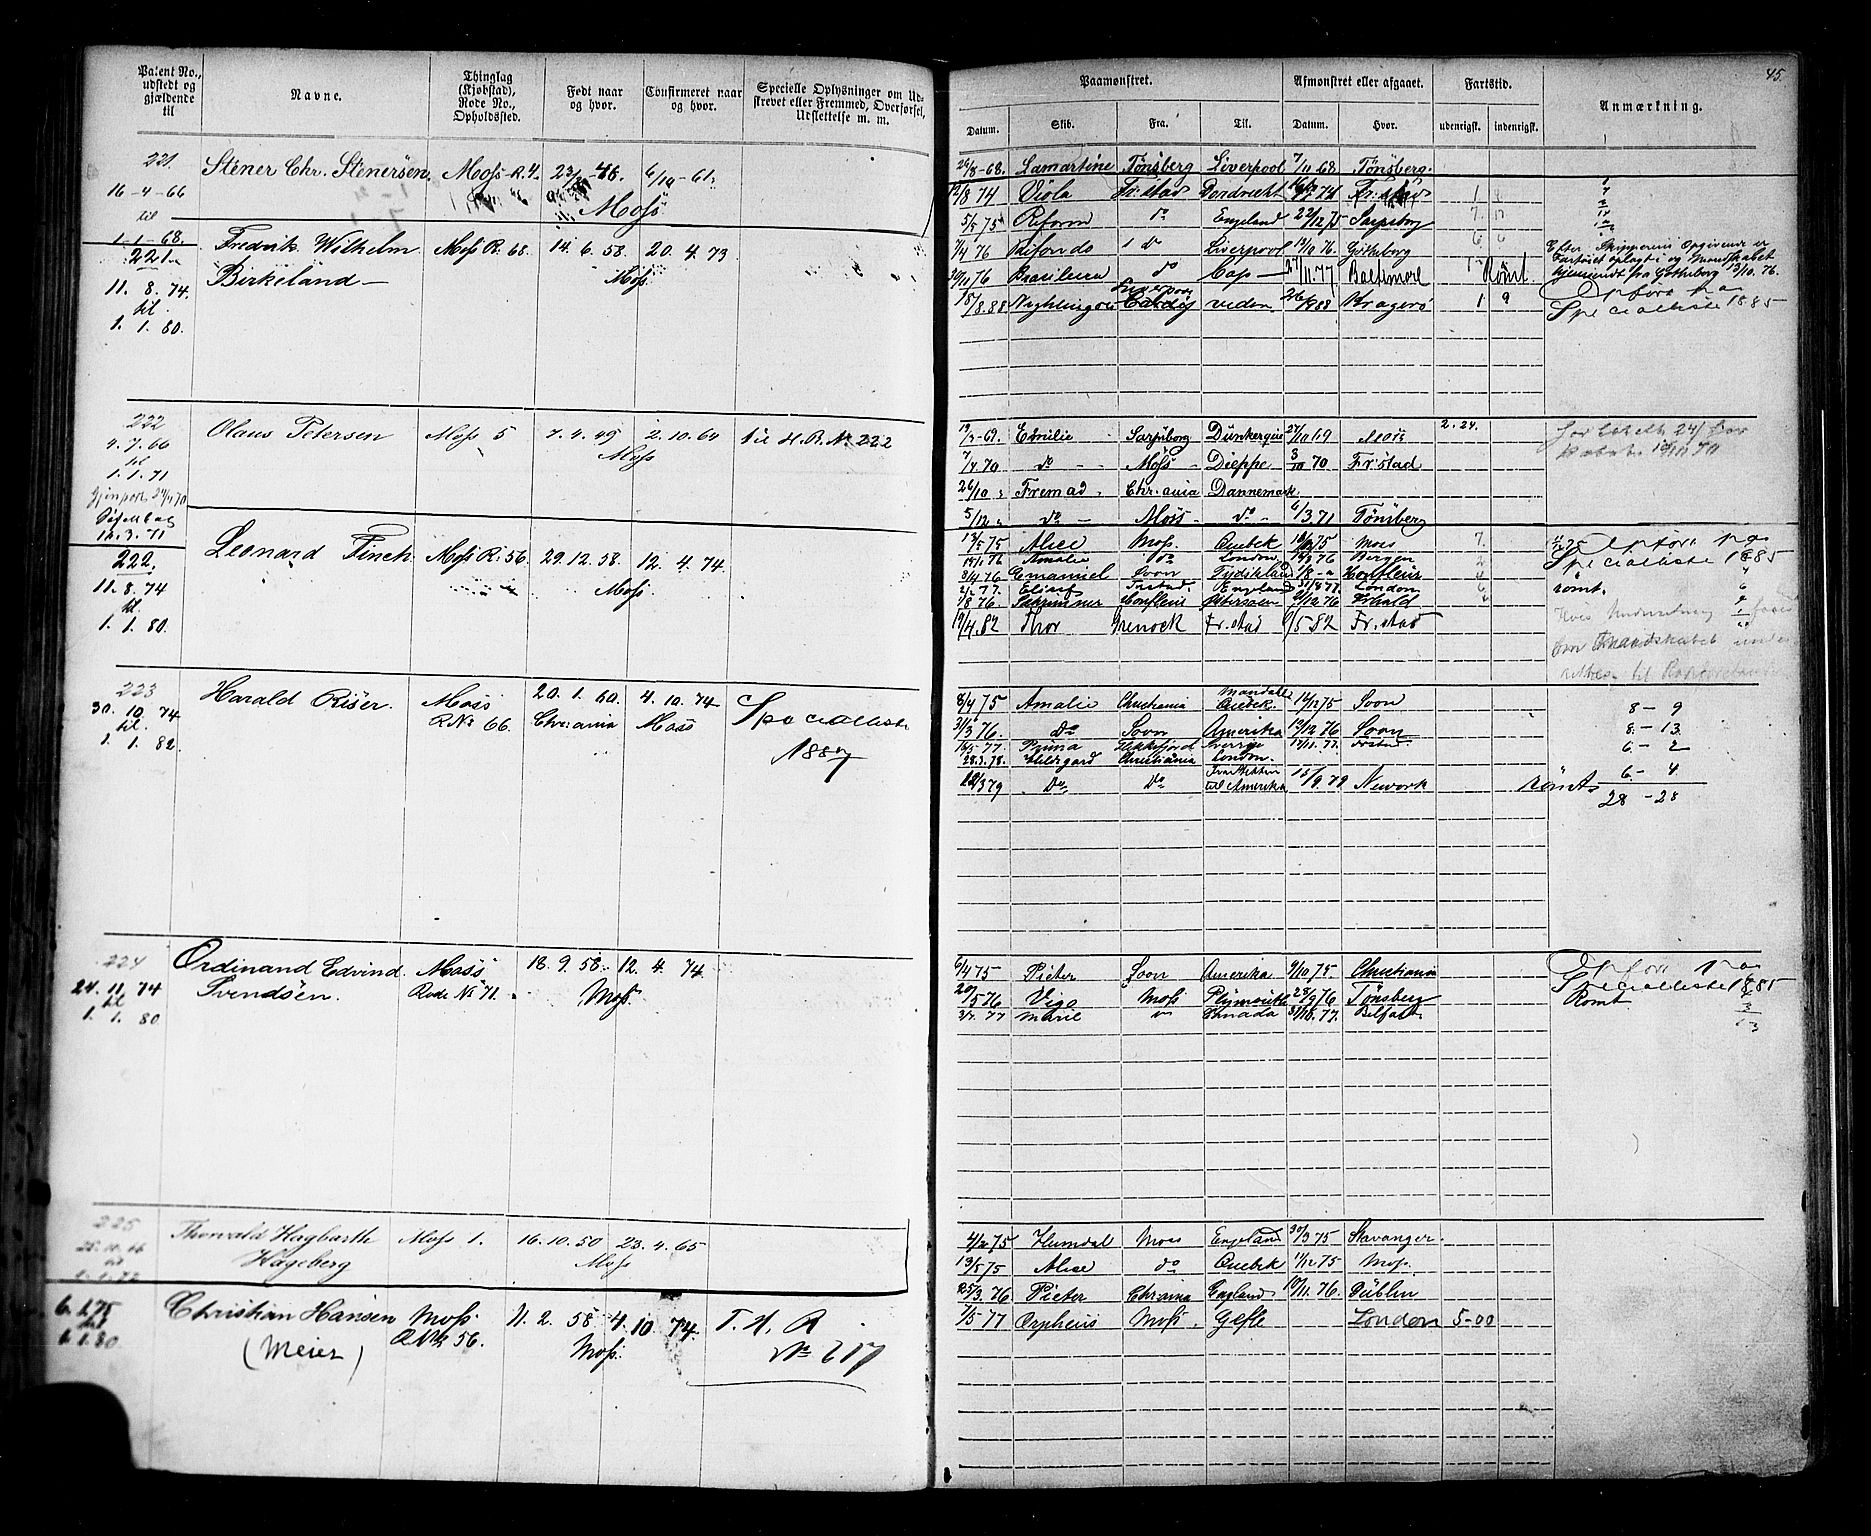 45.
Patent No., udstedt og gjældende til
Navne.
Thinglag (Kjøbstad), Rode No., Opholdssted.
Født naar og hvor.
Confirmeret naar og hvor.
Specielle Oplysninger om Udskrevet eller Fremmed, Overførsel, Udslettelse m. m.
Paamønstret.
Afmønstret eller afgaaet.
Fartstid.
Anmærkning.
Datum. Skib. Fra. Til. Datum. Hvor. udenrigsk. indenrigsk.
221
16-4-66
til
1-1-68.
Stener Chr. Stenersen. Moss-R. 4. 6/10-61.
Moss
26/8-68. Lamartine Tönsberg Liverpool 7/11 68 Tönsberg.
221
11. 8. 74.
til
1. 1. 80.
Fredrik Wilhelm Birkeland Moss R. 68. 14. 6. 58. 20. 4. 73
Moss
12/8 74 Viola Fr:stad Dordrecht
5/5 75 Reform do England 22/12 75 Sarpsborg
7/4 76 do Liverpool 12/10 76. Götheborg
20/10 76 Brasilien do Cap 27/11. 77 Baltimore Römt
15/8. 88 Cardiff veden Kragerö 1 9
Efter Skipperens Opgivende er
Fartöiet oplagt i og Mandskabet
hjemsendt fra Götheborg 12/10. 76.
Opført paa
Specialliste 1885
222
4. 7. 66
til
1. 1. 71
Olaus Petersen Moss 5 7. 4. 49 2. 10. 64 til H. R. No 222
Moss
12. 3. 71
19/3-69. Emilie Sarpsborg Dünkerque 27/10 69 Moss 2. 24.
7/4 70 do Moss Dieppe 3/10 70 Fr:stad
26/10 Fremad Chr:ania Dannemark
5/12 do Moss do 6/3. 71 Tönsberg
222
11. 8. 74
til
1. 1. 80.
Leonard Finch. Moss R. 56. 29. 12. 58. 12. 4. 74.
Moss.
13/5 75 Alice Moss. Quebek 75 Moss 7.
Amalie do London 76 Bergen
3/4 76 Emanuel Soon Tydskland Honfleur
England London
Honfleur
19/4. 82 Thor Grenock Fr. stad 6/5 82 Fr. stad
Opført paa
Specialliste 1885
römt.
223
30. 10. 74
til
1. 1. 82.
Harald Riiser. Moss R. No 66. 20. 1. 60. Chr:ania 4. 10. 74 Moss Specialliste 1887
8/4 75 Amalie Christiania Mandal Quebek. 14/12 75 Soon 8 - 9
21/3 76. do Soon Amerika 19/12 76 Soon 8 - 13
16/5 77. Prima Flekkefjord Sverige 6 - 2
28. 3. 78. Hildegard Christiania London. 6 - 4
3 79 do do til Amerika 79 Newyork römt 28 - 28
224
24. 11. 74
til
1. 1. 80
Ordinand Edvind Svendsen. Moss Rode No 71. 18. 9. 58. 12. 4. 74.
Moss.
6/4 75 Pieter Soon Amerika 9/10 75. Christiania
20/5 76 Vigo Moss Plymouth 28/9 76 Tönsberg
3/4. 77 Marie Canada 31/10. 77. Belfast
Opført paa
Specialliste 1885
Römt
225
Thorvald Hagbarth Hageberg Moss 1. 16. 10. 50 23. 4. 65
Moss
6. 2. 75
til
1. 1. 80
Christian Hansen (Meier) Moss R No 56. 11. 2. 58 4. 10. 74. T. H. R
Moss. No 217
4/2 75 Humdal Moss England 30/3 75 Stavanger.
13/5 75 Alice do Quebek 11/12 75 Moss.
25/3. 76 Pieter Chr:ania England 10/11. 76. Dublin
7/5 77 Orpheus Moss. Gefle London 5-00